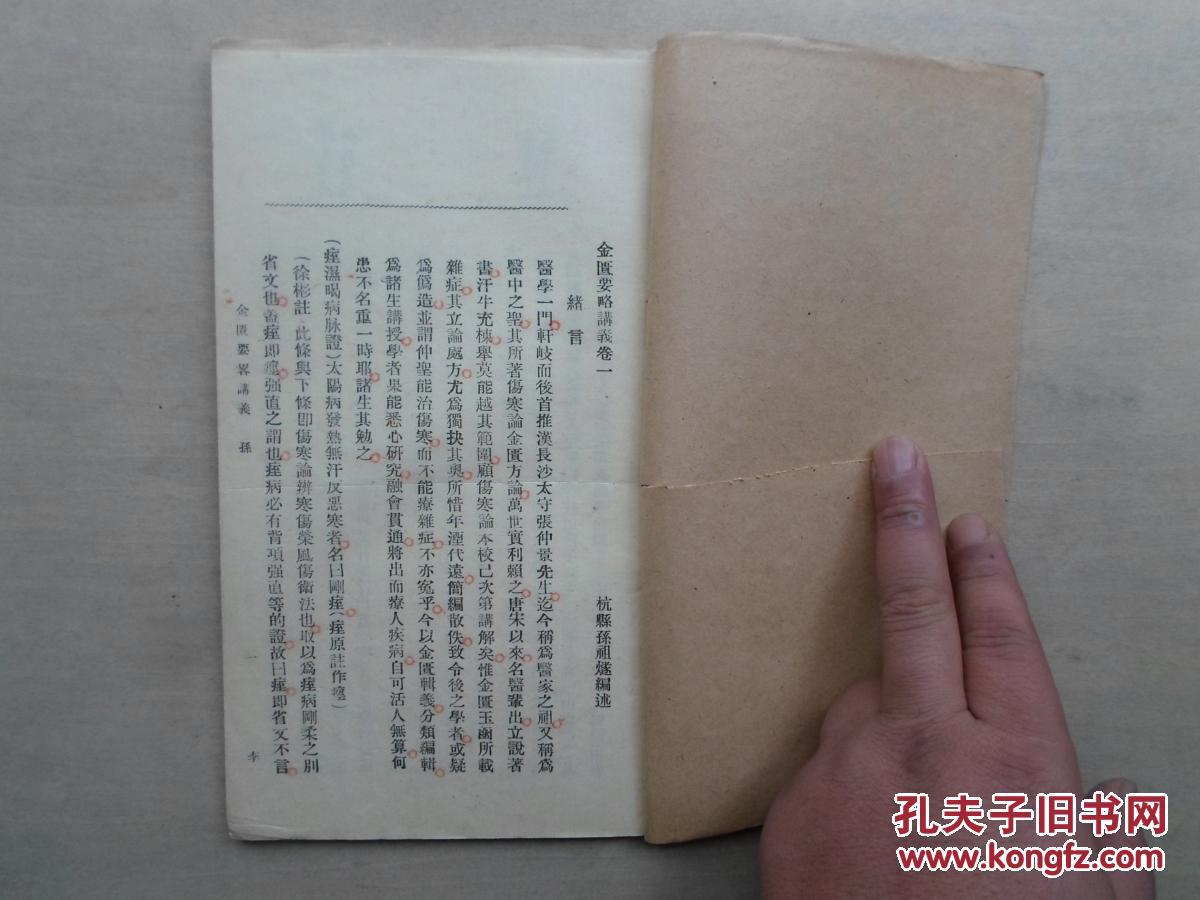 金匱要略講義卷一
杭縣孫祖燧編述
緒言
醫學一門軒岐而後首推漢長沙太守張仲景先生迄今稱為醫家之祖又稱為
醫中之聖其所著傷寒論金匱方論萬世實利賴之唐宋以來名醫輩出立說著
書汗牛充棟舉莫能越其範圍顧傷寒論本校已次第講解矣惟金匱玉函所載
雜症其立論處方尤為獨抉其奧所惜年湮代遠簡編散佚致令後之學者或疑
為僞造並謂仲聖能治傷寒而不能療雜症不亦冤乎今以金匱輯義分類編輯
為諸生講授學者果能悉心研究融會貫通將出而療人疾病自可活人無算何
患不名重一時耶諸生其勉之
(痙濕暍病脉證)太陽病發熱無汗反惡寒者名曰剛痙(痙原註作痓)
(徐彬註)此條與下條即傷寒論辨寒傷榮風傷衛法也取以為痙病剛柔之別
省文也蓋痙即痓强直之謂也痙病必有背項强直等的證故曰痙即省文不言
金匱要畧講義 孫 一
孔夫子旧书网
www.kongfz.com